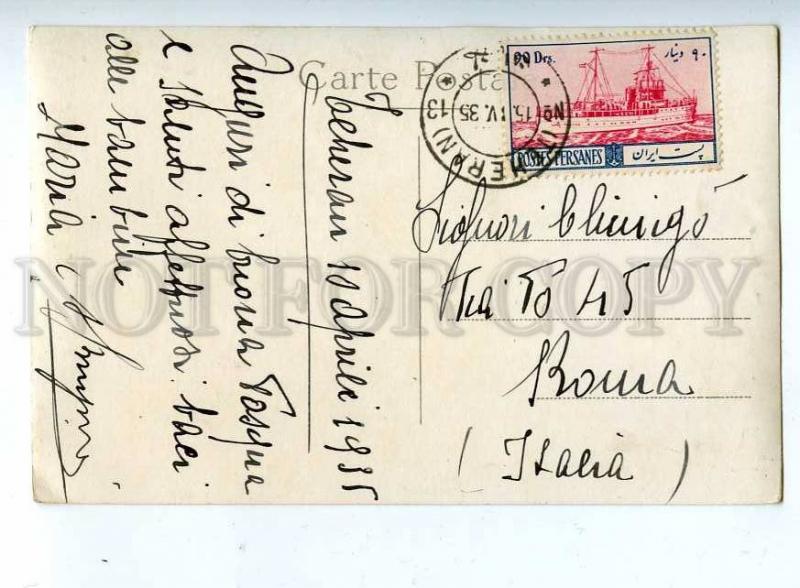 Carte Posta
90 Drs.
۹۰ دینار
POSTES PERSANES
پست ایران
(TEHERAN)
15. IV. 35
13
Teheran 15 aprile 1935
Auguri di buona Pasqua
e saluti affettuosi baci
alle bambine
Maria
Signori
Via Po 45
Roma
(Italia)
NOT FOR COPY